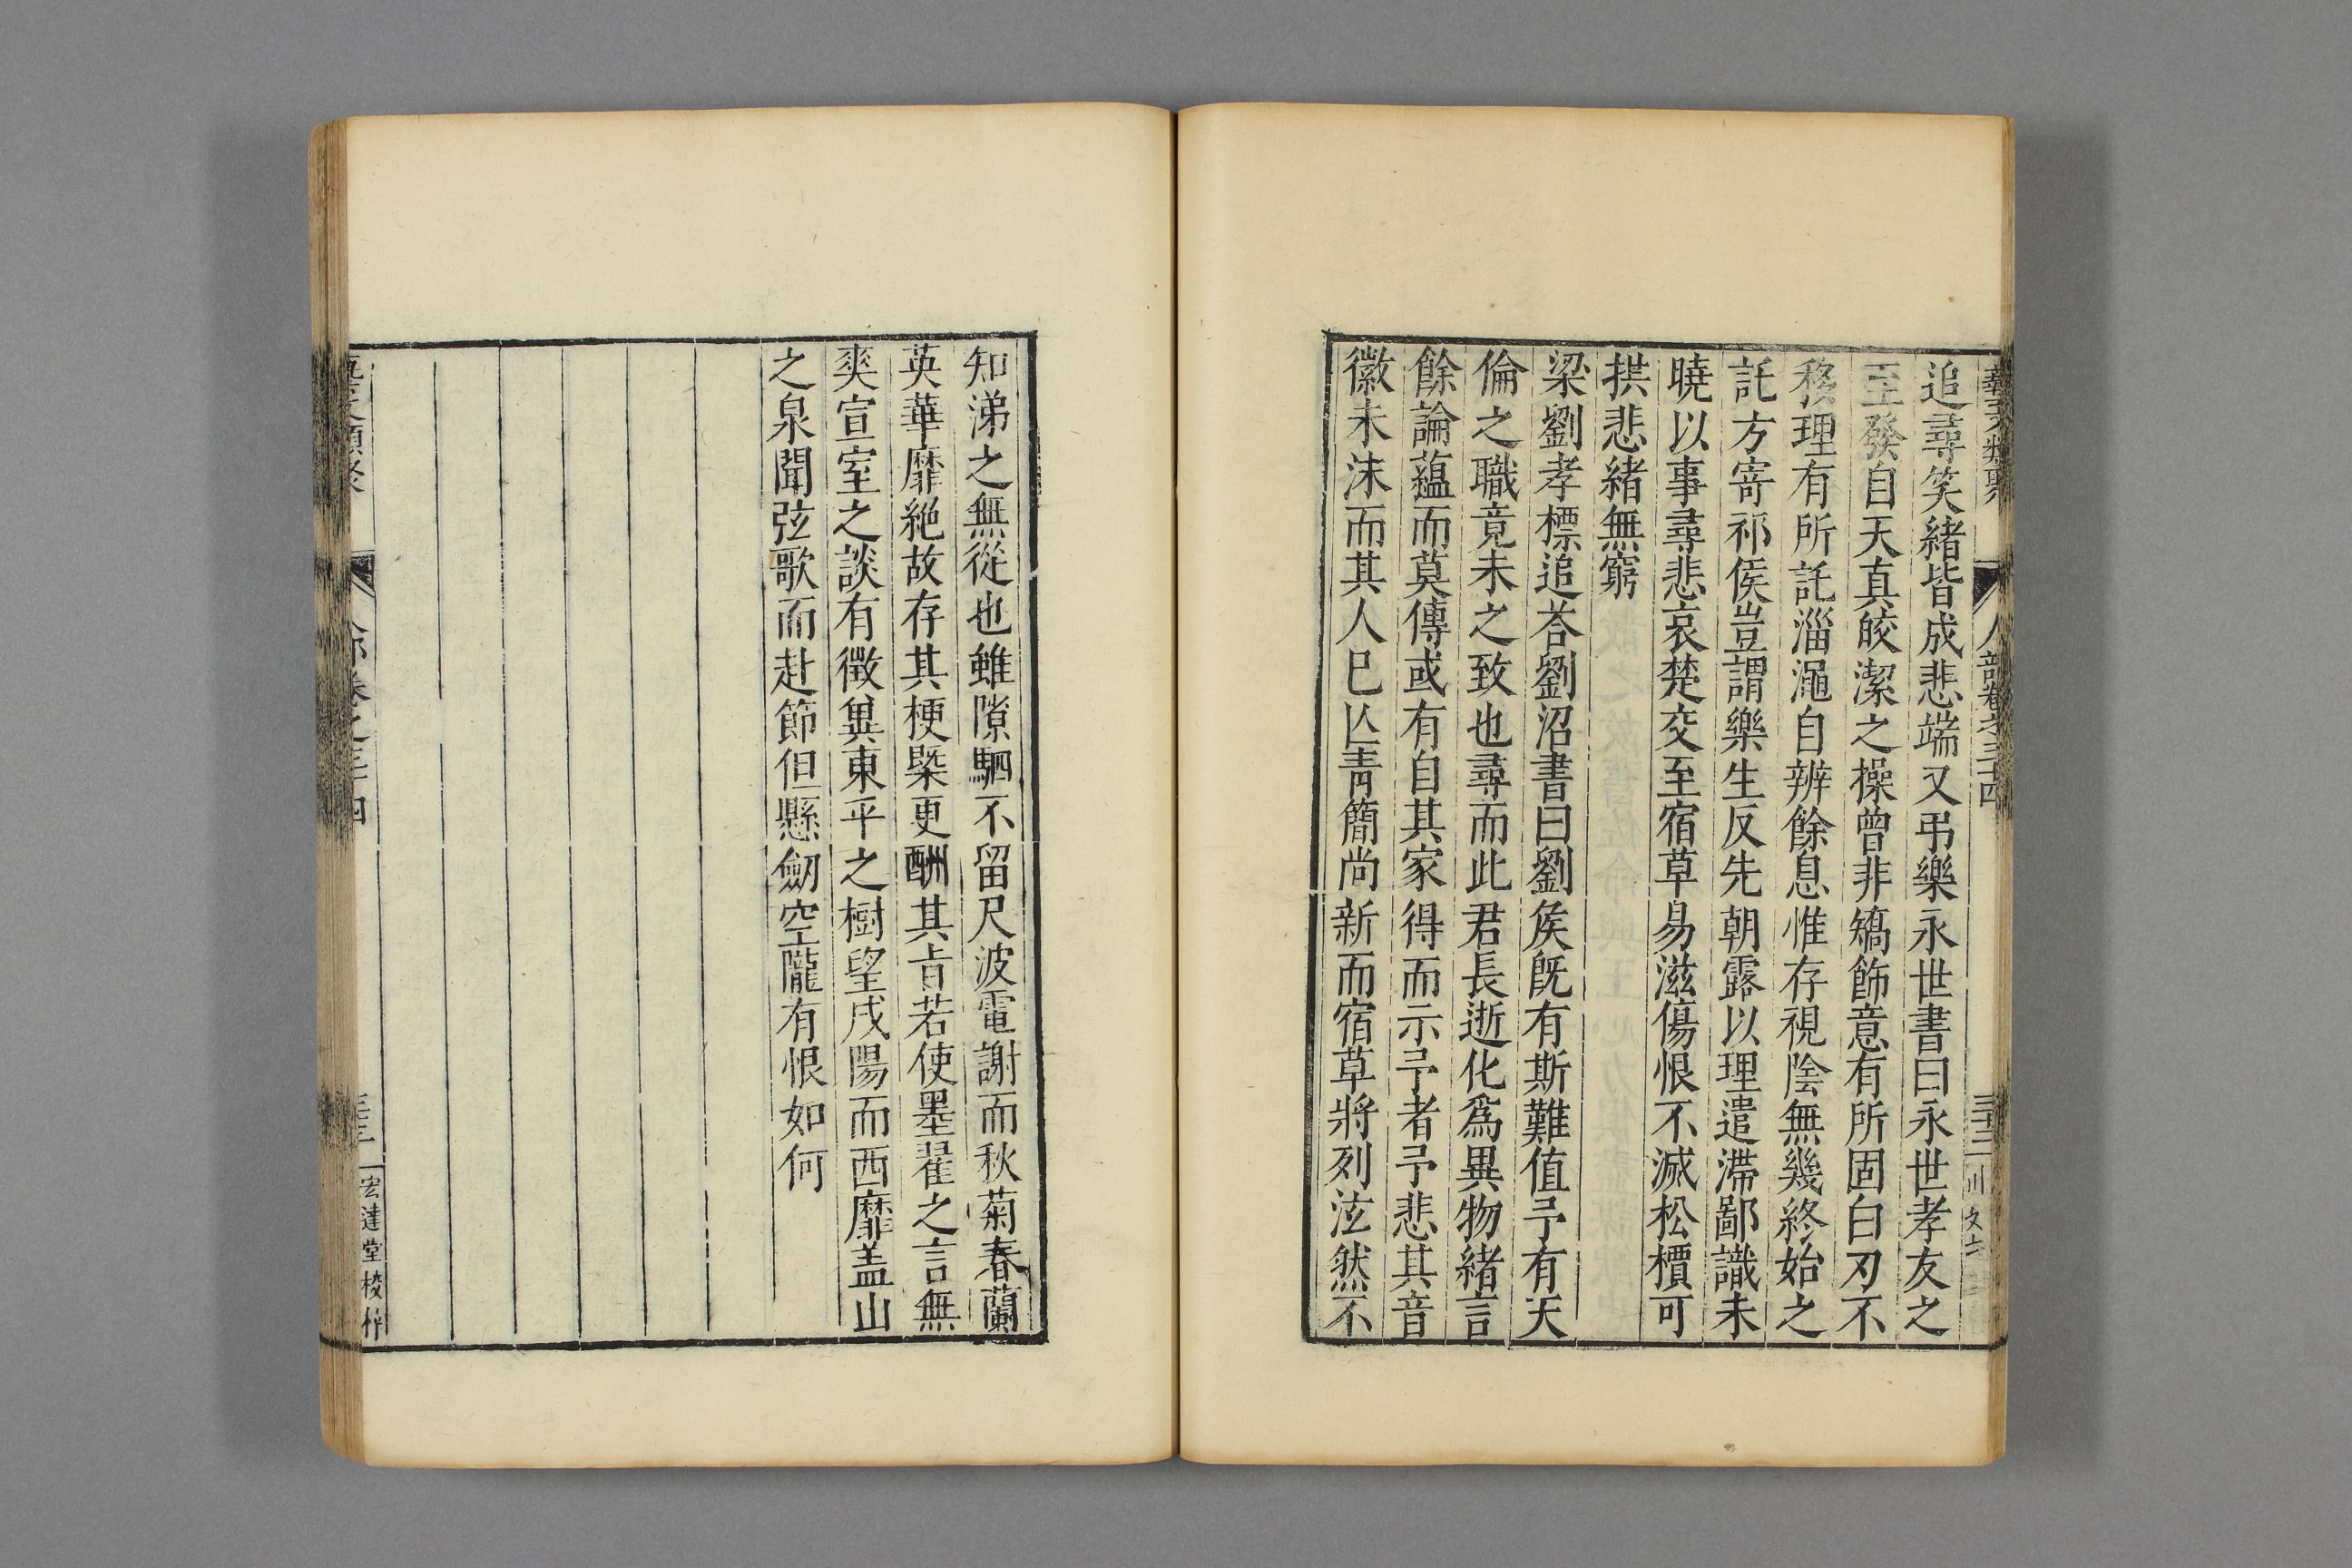 藝文類聚 人部卷之三十四 三十三 川 文六
追尋笑緒皆成悲端又弔樂永世書曰永世孝友之
至發自天真皎潔之操曾非矯飾意有所固白刃不
移理有所託淄澠自辨餘息惟存視陰無幾終始之
託方寄祁侯豈謂樂生反先朝露以理遣滯鄙識未
曉以事尋悲哀楚交至宿草易滋傷恨不滅松檟可
拱悲緒無窮
梁劉孝標追荅劉沼書曰劉侯旣有斯難值予有天
倫之職竟未之致也尋而此君長逝化爲異物緒言
餘論蘊而莫傳或有自其家得而示予者予悲其音
徽未沬而其人已亾青簡尚新而宿草將列泫然不
知涕之無從也雖隙駟不留尺波電謝而秋菊春蘭
英華靡絶故存其梗槩更酬其旨若使墨翟之言無
爽宣室之談有徵兾東平之樹望戍陽而西靡盖山
之泉聞弦歌而赴節但懸劒空隴有恨如何
藝文類聚 人部卷之三十四 三十三 宏達堂校梓